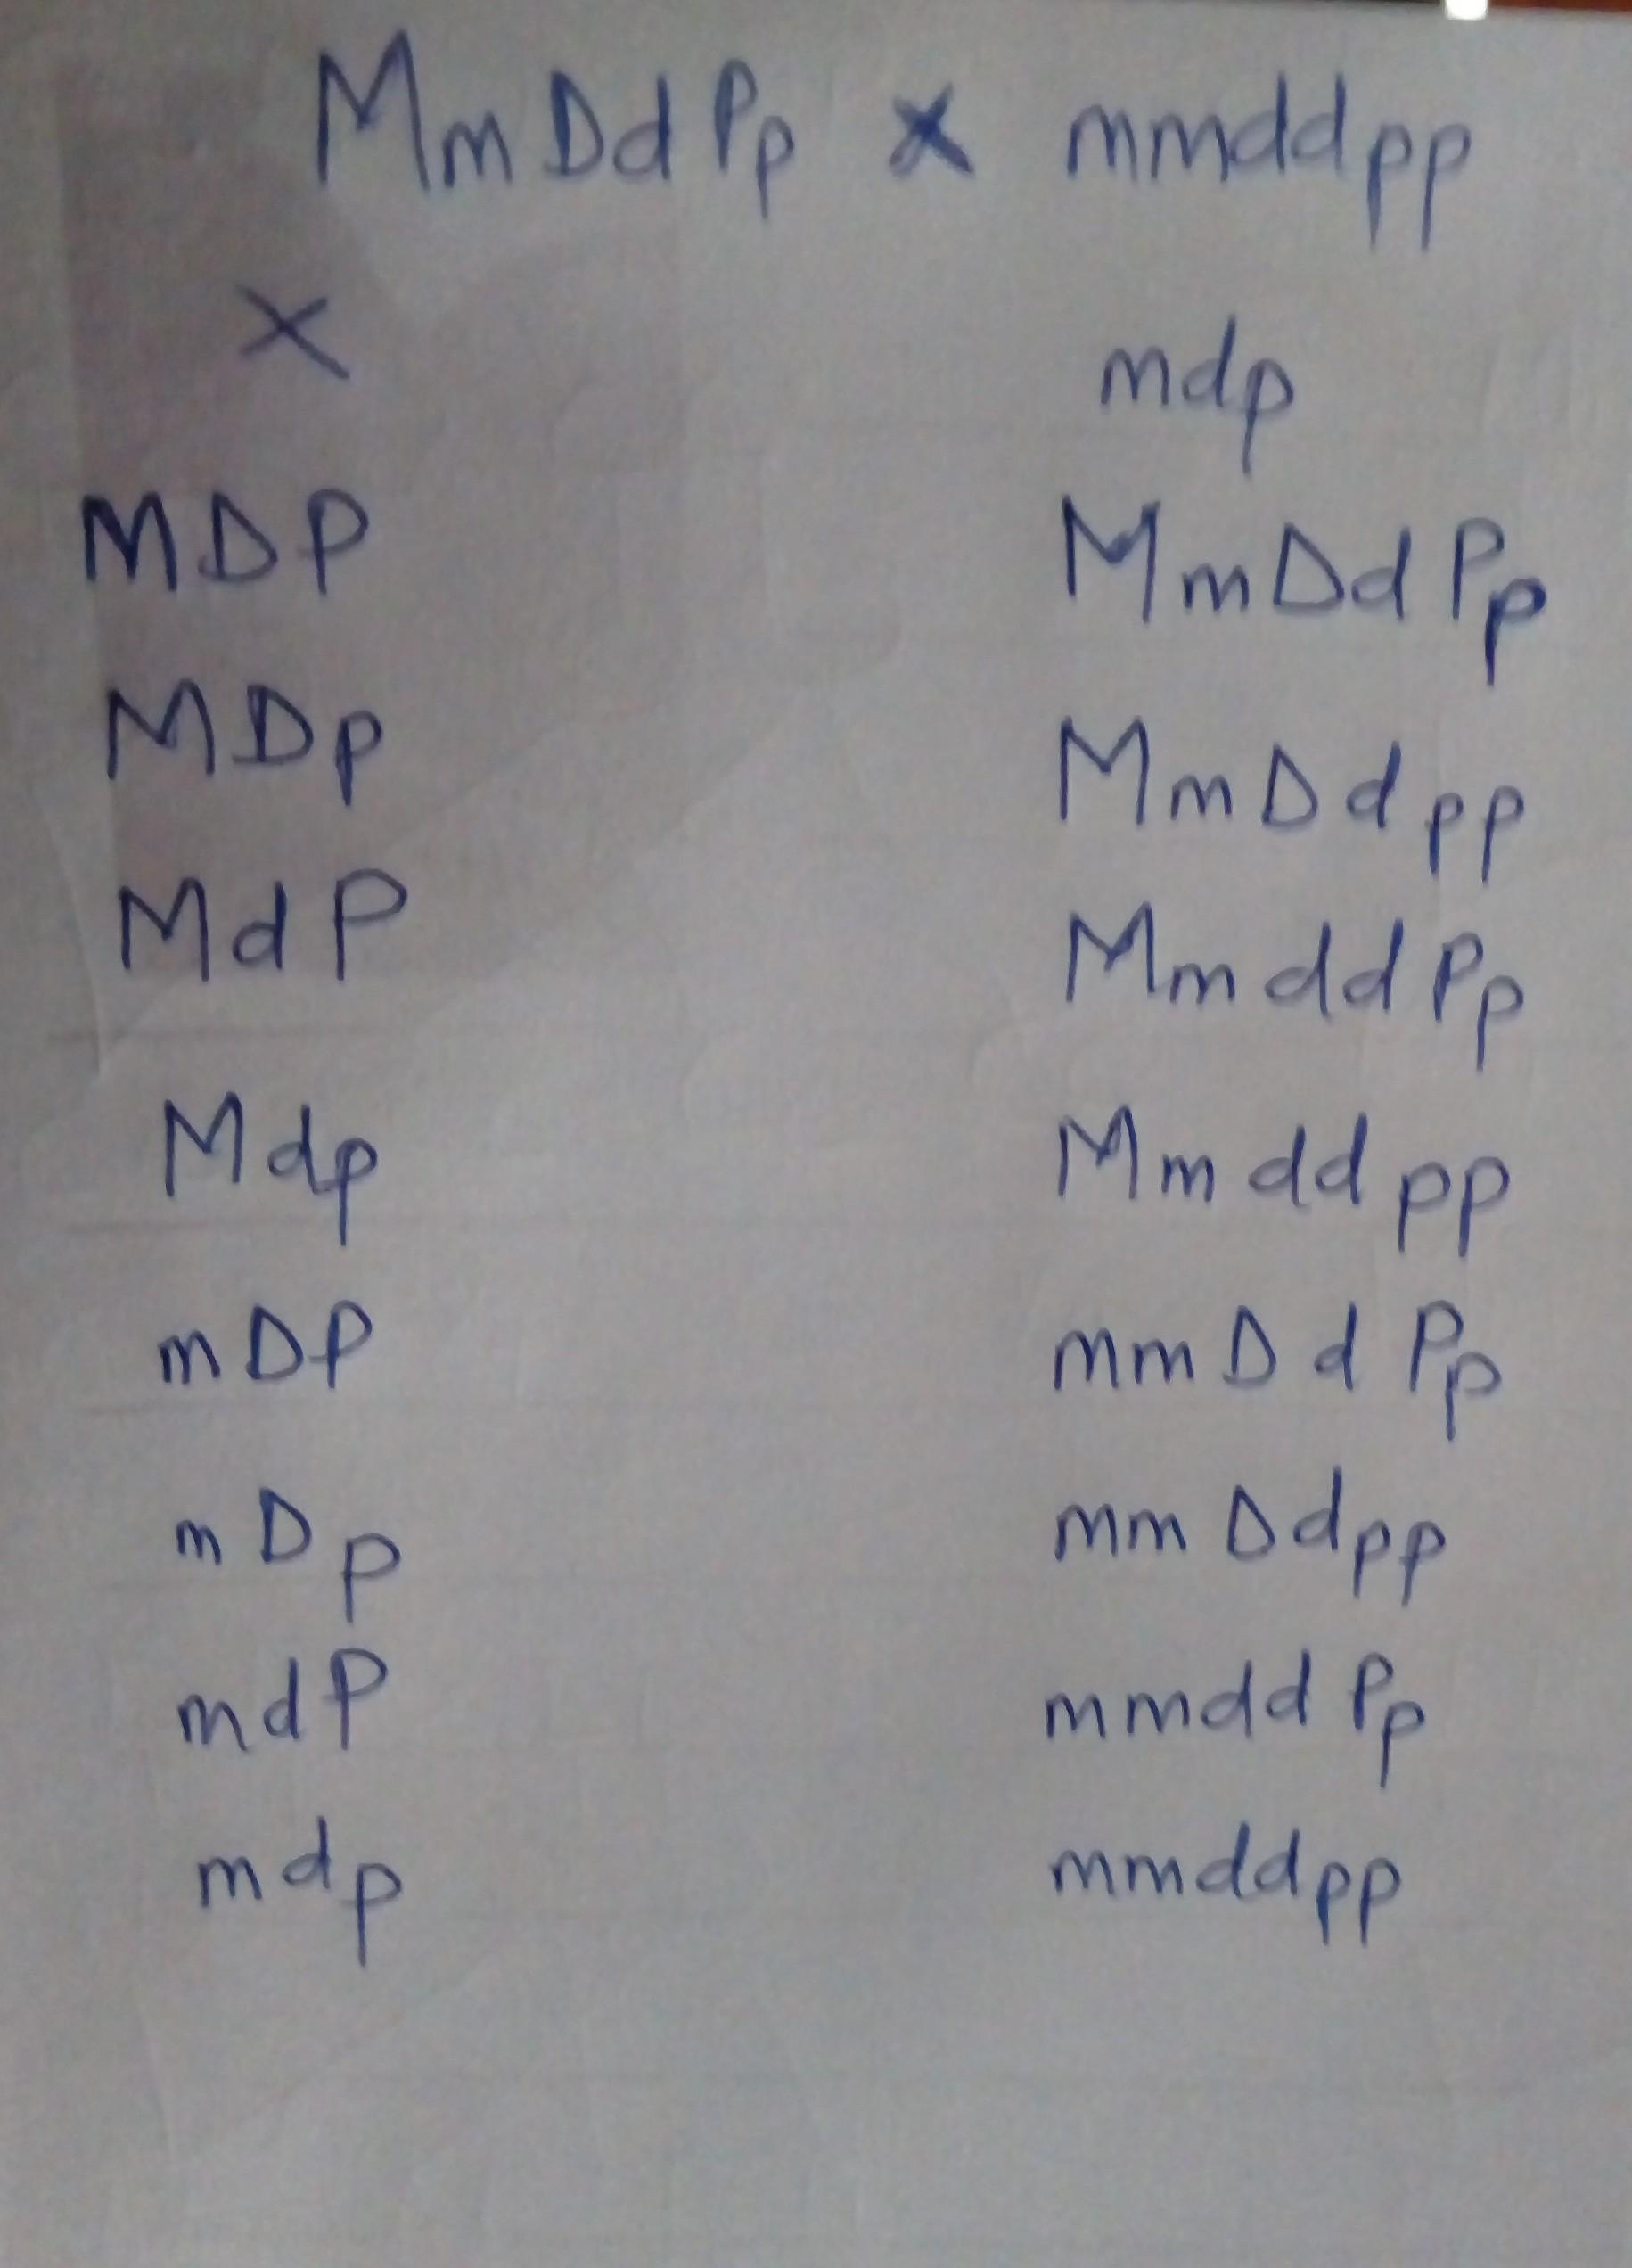 MmDdPp x mmddpp
x mdp
MDP MmDdPp
MDp MmDdpp
MdP MmddPp
Mdp Mmddpp
mDP mmDdPp
mDp mmDdpp
mdP mmddPp
mdp mmddpp